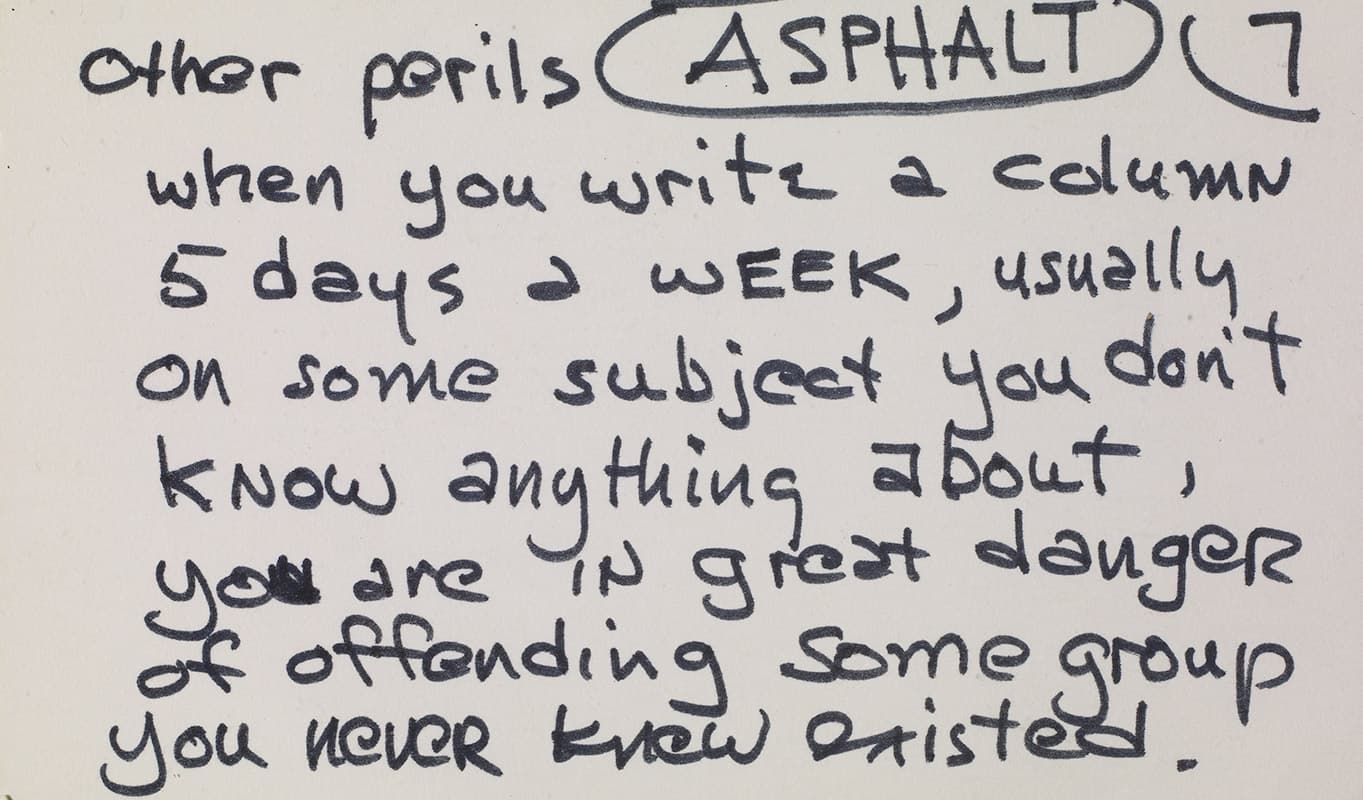 Other perils ASPHALT 7
when you write a column
5 days a WEEK, usually
on some subject you don't
KNOW anything about,
you are IN great dangeR
of offending some group
you neveR knew existed.